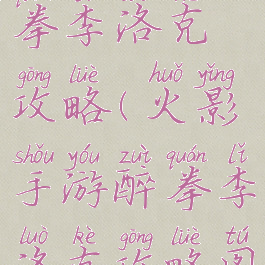 拳李洛克
gōng lüè huǒ yǐng
攻略(火影
shǒu yóu zuì quán lǐ
手游醉拳李
luò kè gōng lüè tú
洛克攻略图